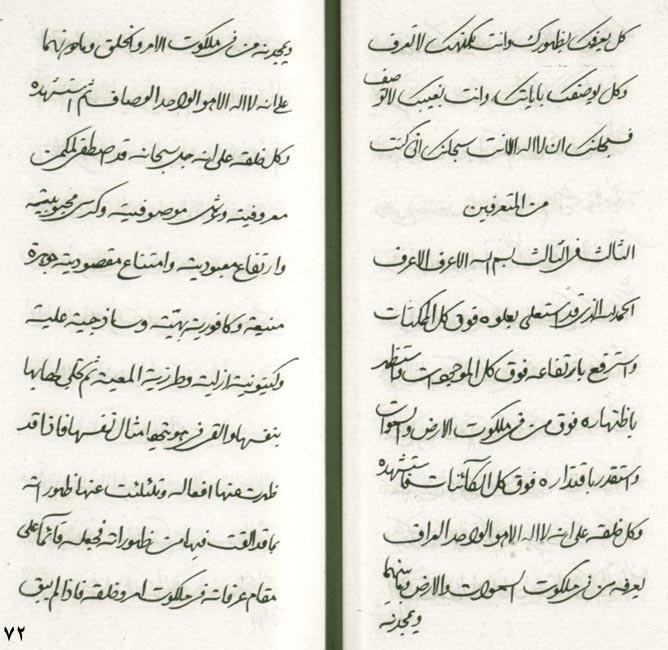 كل يعرفك بظهورك وانت بكنهك لا تعرف
وكل يوصفك باياتك وانت بغيبك لا توصف
فسبحانك ان لا اله الا انت سبحانك انى كنت
من المتعرفين
الثالث فى الثالث بسم الله الاعرف الاعرف
الحمد لله الذى قد استعلى بعلوه فوق كل الممكنات
واسترفع بارتفاعه فوق كل الموجودات واستظهر
باظتهاره فوق من فى ملكوت الارض والسموات
واستقدر باقتداره فوق كل الكائنات فاستشهده
وكل خلقه على انه لا اله الا هو الواحد العراف
يعرفه من فى ملكوت السموات والارض وما بينهما
ويمجدنه
ويمجدنه من فى ملكوت الامر والخلق وما دونهما
على انه لا اله الا هو الواحد الوصاف ثم استشهده
وكل خلقه على انه جل سبحانه قد اصطفى لمكمن
معروفيته وعرش موصوفيته وكرسى محبوبيته
وارتفاع معبوديته وامتناع مقصوديته جوهرة
منيعة وكافورية بهيّته وساذجية علية
وكينونية ازلية وطرزية المعية ثم تجلى لها بها
بنفسها والقى فى هويتها مثال نفسها فاذا قد
ظهرت عنها افعاله وتلئلئت عنها ظهوراته
بما قد القت فيها من ظهوراته فجعله قائما على
مقام عرفانه فى ملكوت امره وخلقه فاذا لم يبق
٧٢